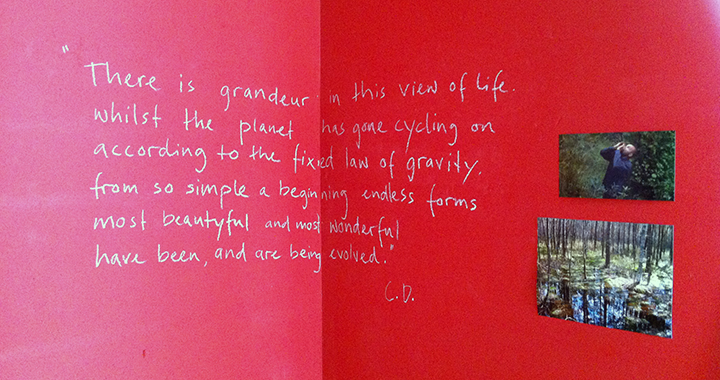 "There is grandeur in this view of life.
whilst the planet has gone cycling on
according to the fixed law of gravity,
from so simple a beginning endless forms
most beautyful and most wonderful
have been, and are being evolved."
C.D.